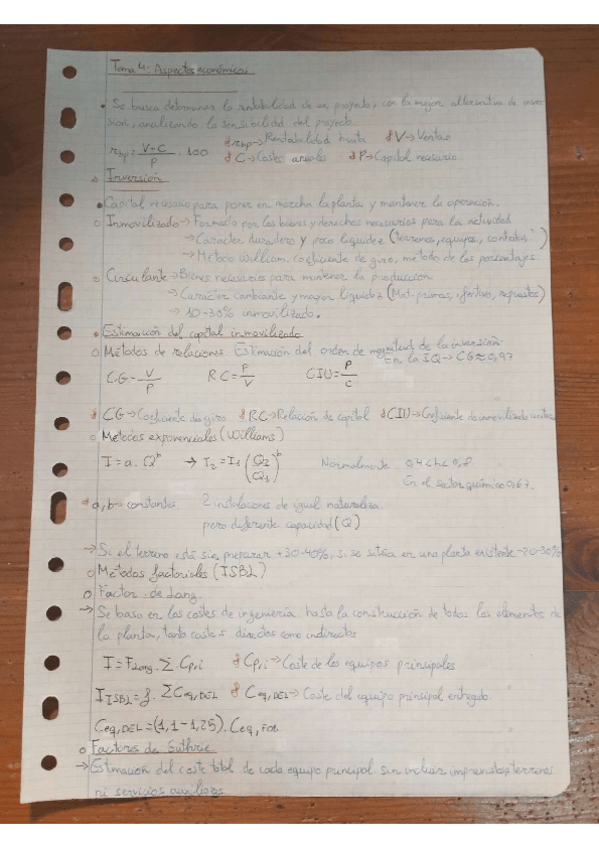 Tema 4: Aspectos económicos
• Se busca determinar la rentabilidad de un proyecto, con la mejor alternativa de inver-
sión, analizando la sensibilidad del proyecto.
r_bp = (V-C)/P · 100   r_bp → Rentabilidad bruta   V → Ventas
C → Costes anuales   P → Capital necesario
Inversión
• Capital necesario para poner en marcha la planta y mantener la operación.
○ Inmovilizado → Formado por los bienes y derechos necesarios para la actividad
→ Carácter duradero y poca liquidez (terrenos, equipos, contratos)
→ Método William, coeficiente de giro, método de los porcentajes.
○ Circulante → Bienes necesarios para mantener la producción
→ Carácter cambiante y mayor liquidez (Mat. primas, efectivo, repuestos)
→ 10-30% inmovilizado.
• Estimación del capital inmovilizado
○ Métodos de relaciones. Estimación del orden de magnitud de la inversión.
En la IQ → CG ≈ 0,97
CG = V/P   RC = P/V   CIU = P/C
CG → Coeficiente de giro   RC → Relación de capital   CIU → Coeficiente de inmovilizado
○ Métodos exponenciales (Williams)
I = a · Q^b   → I2 = I1 (Q2/Q1)^b   Normalmente 0,4 < b < 0,8
En el sector químico 0,67.
a, b → constantes   2 instalaciones de igual naturaleza
pero diferente capacidad (Q)
→ Si el terreno está sin preparar +30-40%, si se sitúa en una planta existente -20-30%
○ Métodos factoriales (ISBL)
○ Factor de Lang.
→ Se basa en los costes de ingeniería hasta la construcción de todos los elementos de
la planta, tanto costes directos como indirectos
I = F_Lang · Σ C_p,i   C_p,i → Coste de los equipos principales
I_ISBL = f · Σ C_eq,DEL   C_eq,DEL → Coste del equipo principal entregado
C_eq,DEL = (1,1 - 1,25) · C_eq,FOB
○ Factores de Guthrie
→ Estimación del coste total de cada equipo principal sin incluir terrenos
ni servicios auxiliares